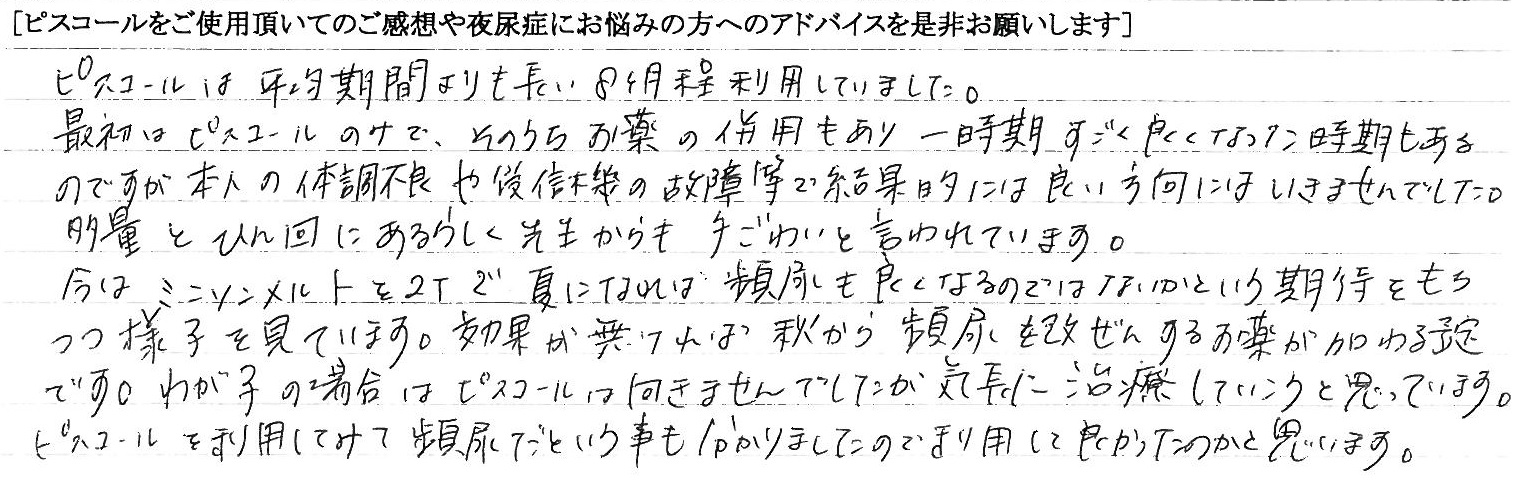 [ピスコールをご使用頂いてのご感想や夜尿症にお悩みの方へのアドバイスを是非お願いします]
ピスコールは平均期間よりも長い8ヶ月程利用していました。
最初はピスコールのみで、そのうちお薬の併用もあり一時期すごく良くなった時期もある
のですが本人の体調不良や受信機の故障等で結果的には良い方向にはいきませんでした。
多量とひん回にあるらしく先生からも手ごわいと言われています。
今はミニリンメルトを2Tで夏になれば頻尿も良くなるのではないかという期待をもち
つつ様子を見ています。効果が無ければ秋から頻尿を改ぜんするお薬が加わる予定
です。わが子の場合はピスコールは向きませんでしたが気長に治療していこうと思っています。
ピスコールを利用してみて頻尿だという事も分かりましたので利用して良かったのかと思います。